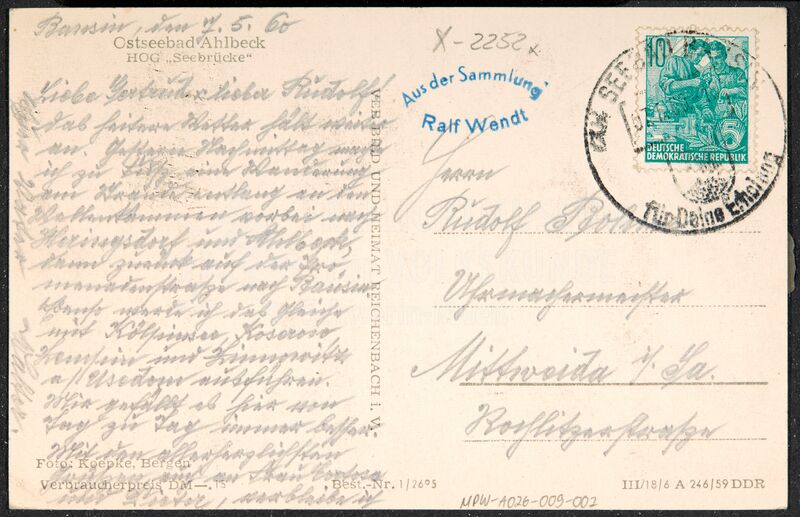 Bansin, den 7. 5. 60
Ostseebad Ahlbeck
HOG „Seebrücke"
Liebe Gertrud, lieber Rudolf!
das heitere Wetter hält weiter
an. Gestern Nachmittag machte
ich zu Fuß eine Wanderung
am Strande entlang an den
Wellenkämmen vorbei nach
Heringsdorf und Ahlbeck,
dann zurück auf der Pro-
menadenstraße nach Bansin.
Ebenso werde ich das Gleiche
mit Kölpinsee, Koserow
Zempin und Zinnowitz
a/Usedom ausführen.
Mir gefällt es hier von
Tag zu Tag immer besser.
Mit den allerherzlichsten
Grüßen auch an
und Dieter, verbleibe ich
Foto: Koepke, Bergen
Verbraucherpreis DM —.15
Best.-Nr. 1/2695
VERLAG BILD UND HEIMAT REICHENBACH I. V.
X-2252
Aus der Sammlung
Ralf Wendt
10
5
DEUTSCHE
DEMOKRATISCHE REPUBLIK
SEEBAD
für Deine Erholung
Herrn
Rudolf
Uhrmachermeister
Mittweida i/Sa.
Rochlitzerstraße
III/18/6 A 246/59 DDR
MPW-A026-009-002